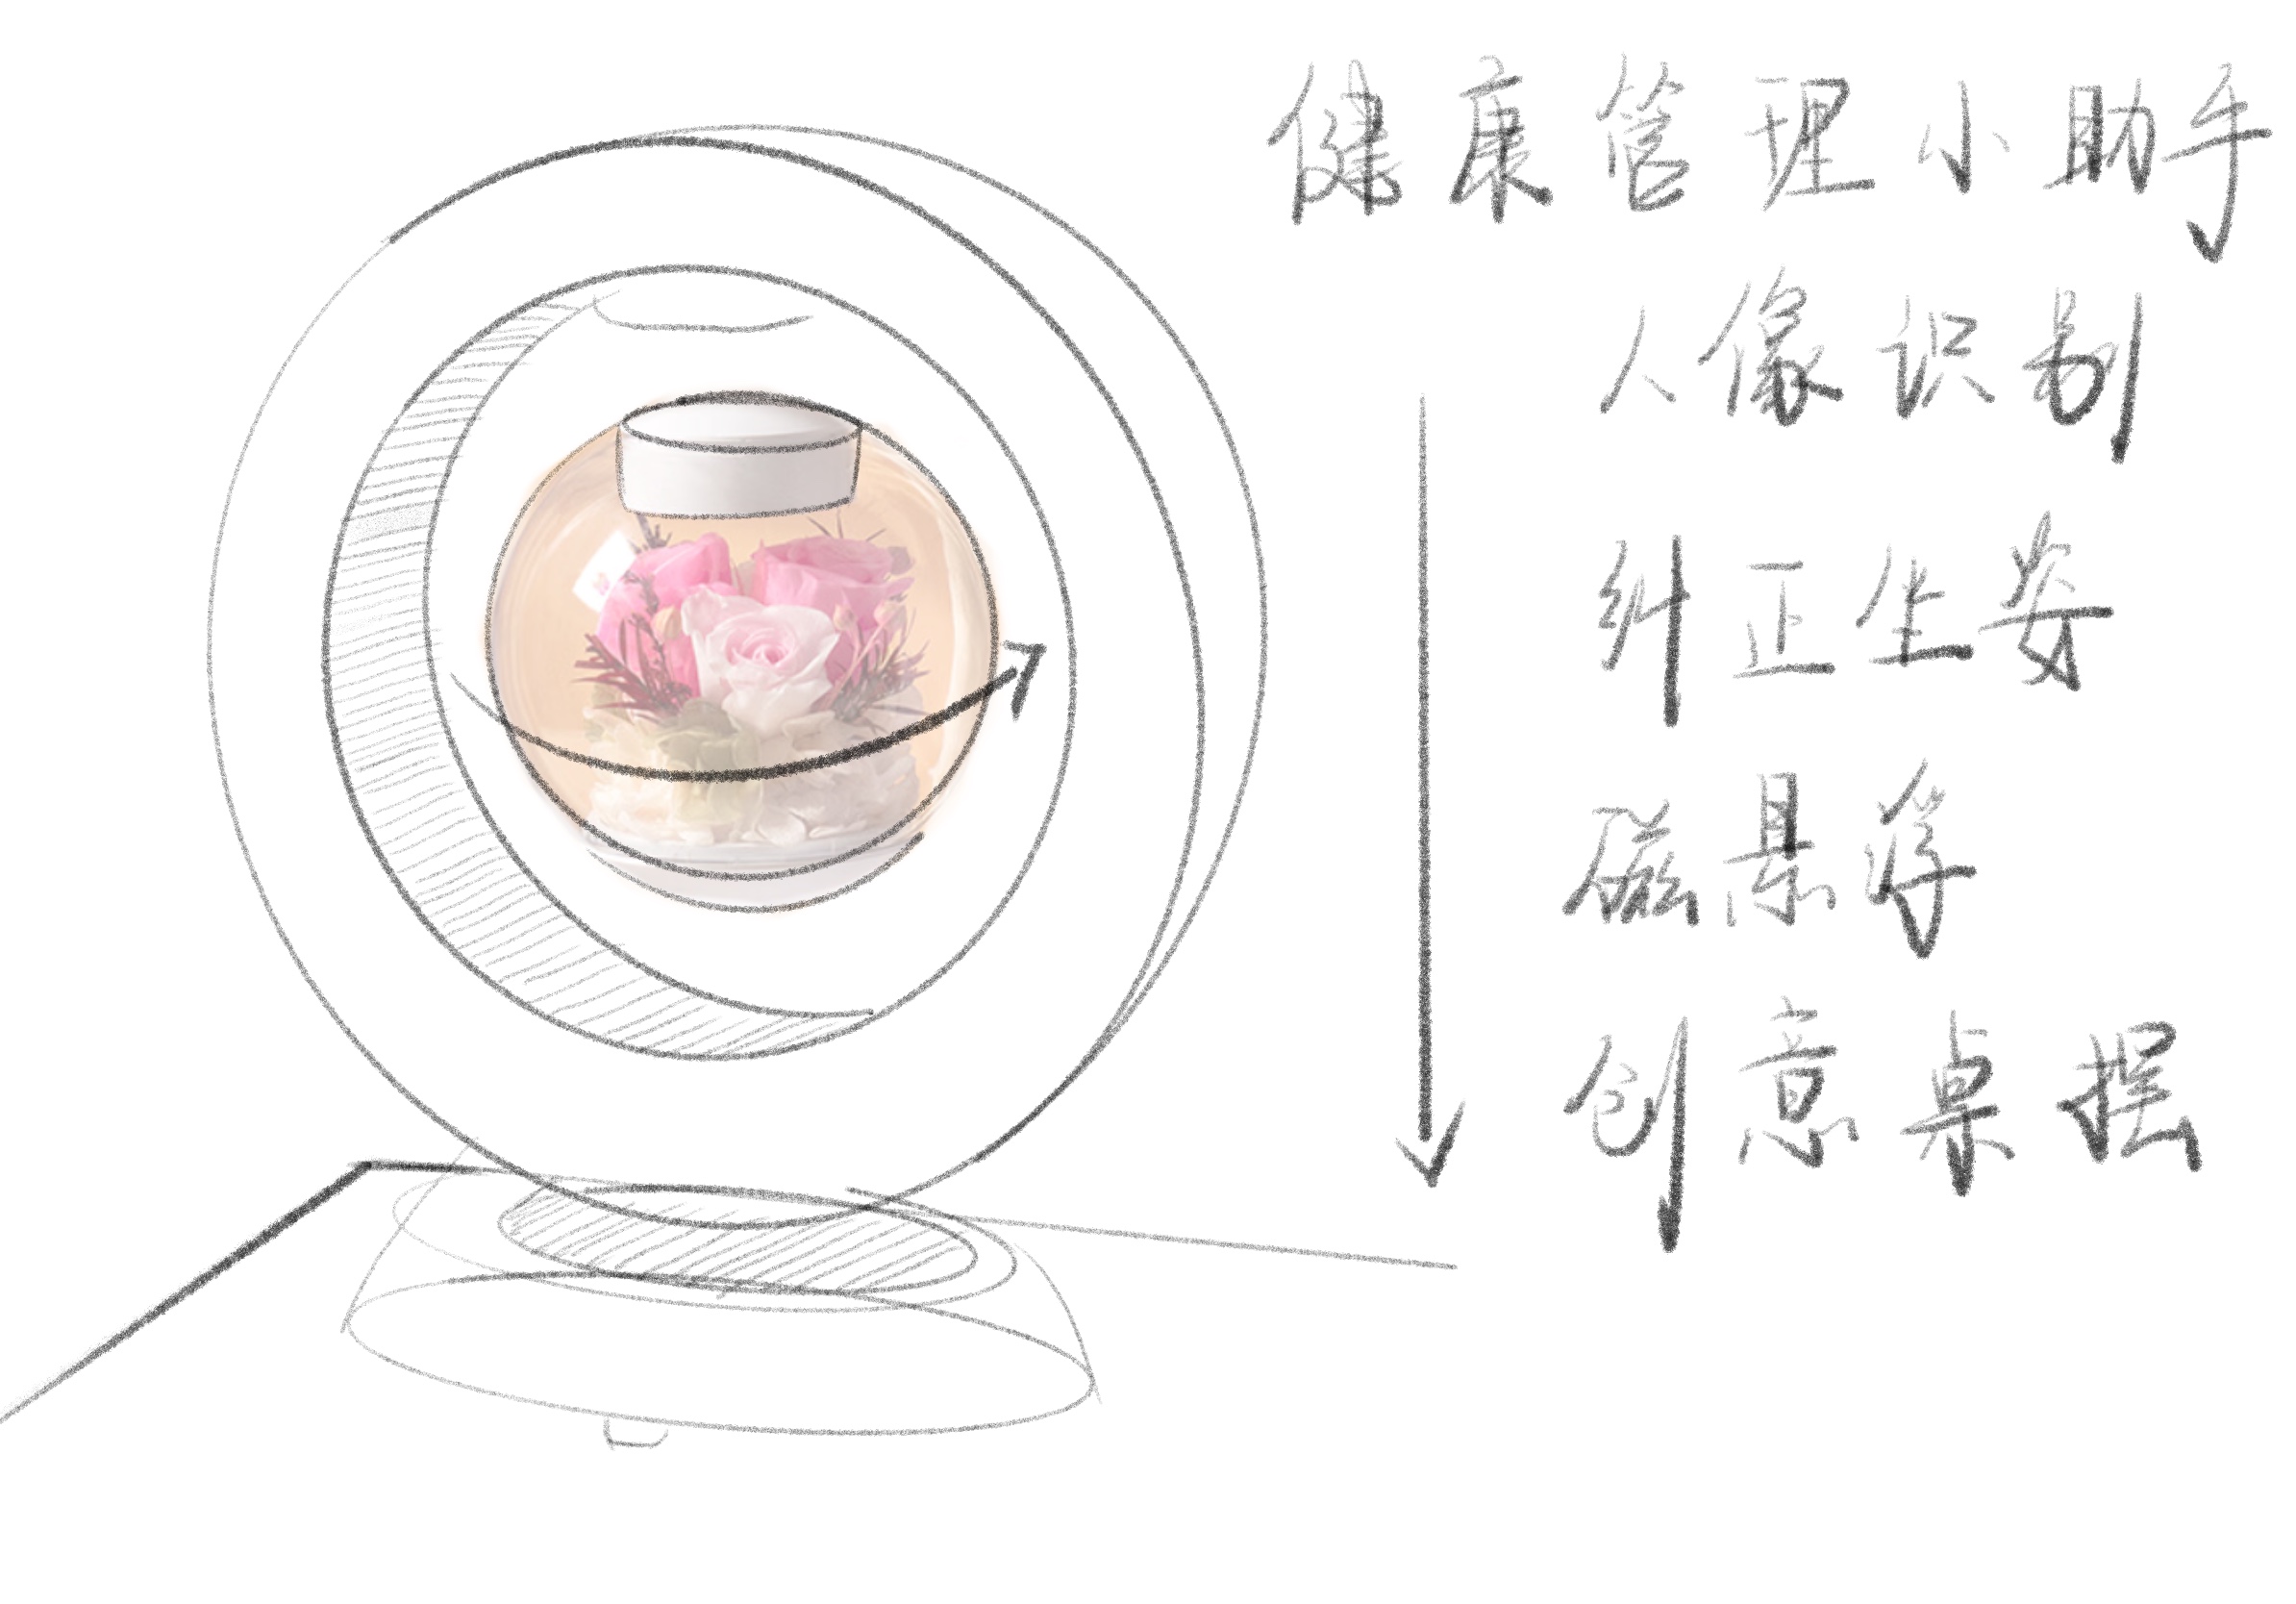 健康管理小助手
人像识别
纠正坐姿
磁悬浮
创意桌摆